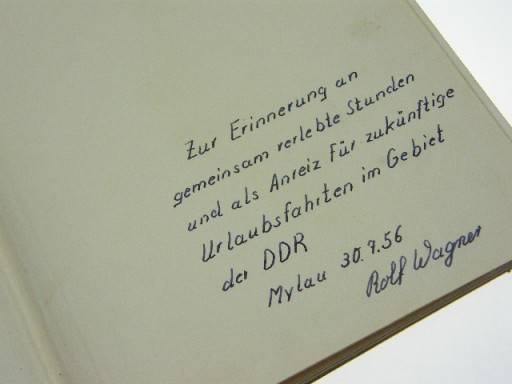 Zur Erinnerung an
gemeinsam verlebte Stunden
und als Anreiz für zukünftige
Urlaubsfahrten im Gebiet
der DDR
Mylau 30.7.56
Rolf Wagner